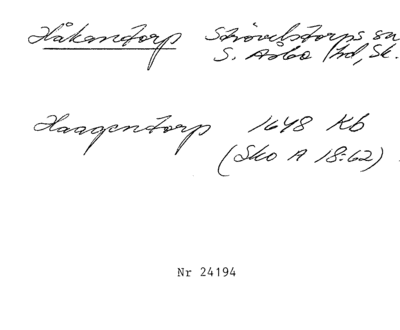 Håkantorp Strövelstorps sn
S. Åsbo hd, Sk.
Haagentorp 1648 Kb
(Sko A 18:62)
Nr 24194